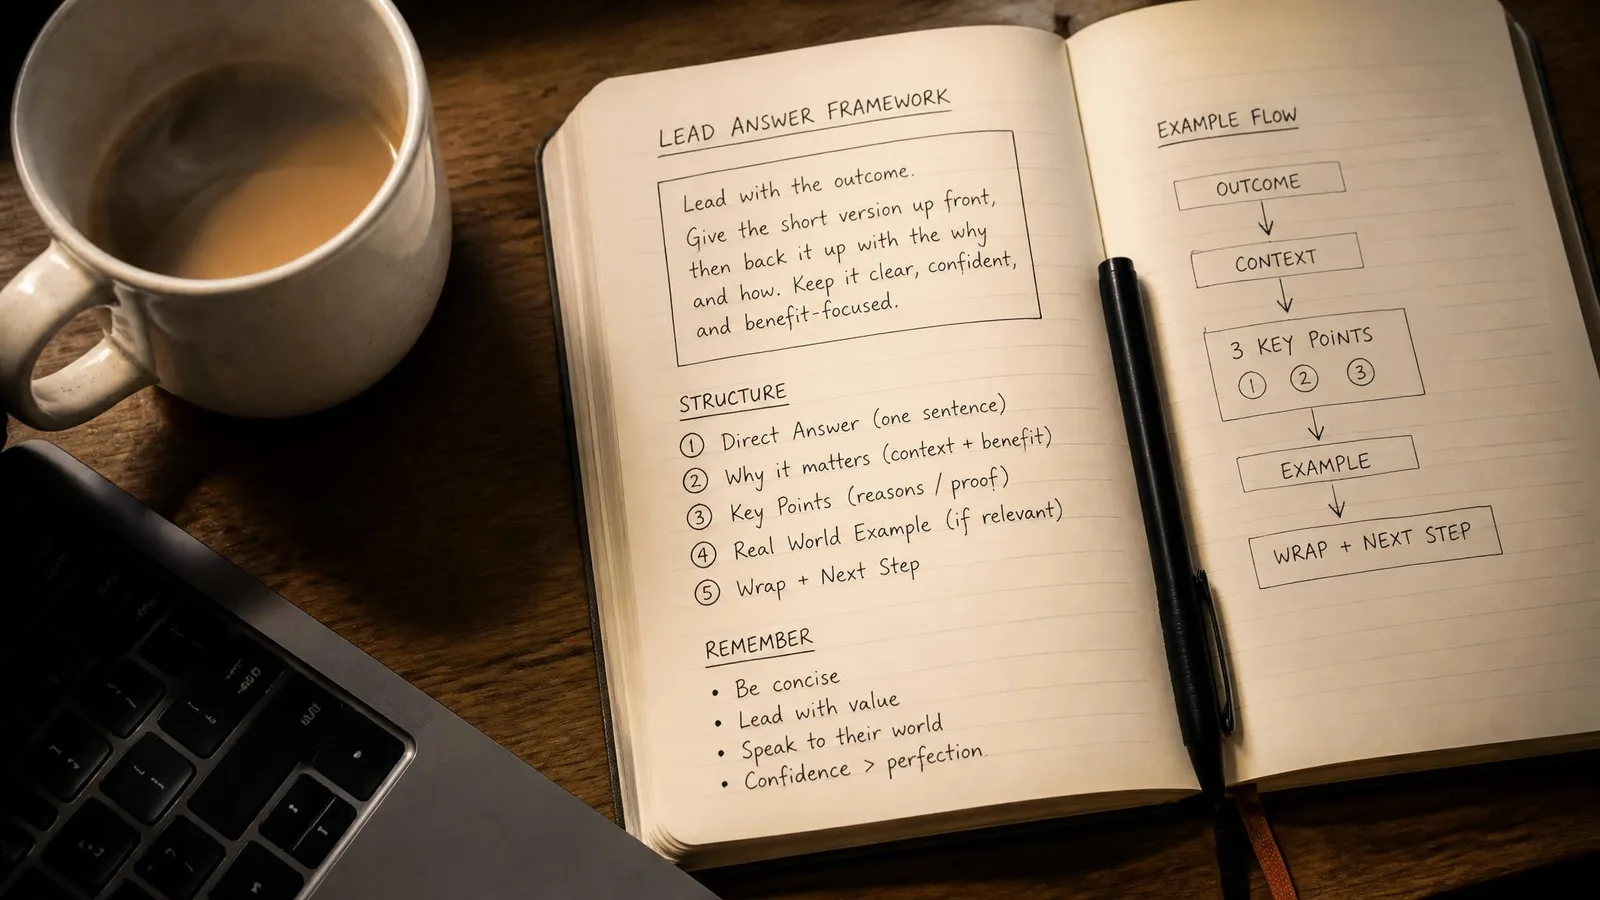 LEAD ANSWER FRAMEWORK
Lead with the outcome.
Give the short version up front,
then back it up with the why
and how. Keep it clear, confident,
and benefit-focused.
STRUCTURE
① Direct Answer (one sentence)
② Why it matters (context + benefit)
③ Key Points (reasons / proof)
④ Real World Example (if relevant)
⑤ Wrap + Next Step
REMEMBER
• Be concise
• Lead with value
• Speak to their world
• Confidence > perfection
EXAMPLE FLOW
OUTCOME
CONTEXT
3 KEY POINTS
① ② ③
EXAMPLE
WRAP + NEXT STEP